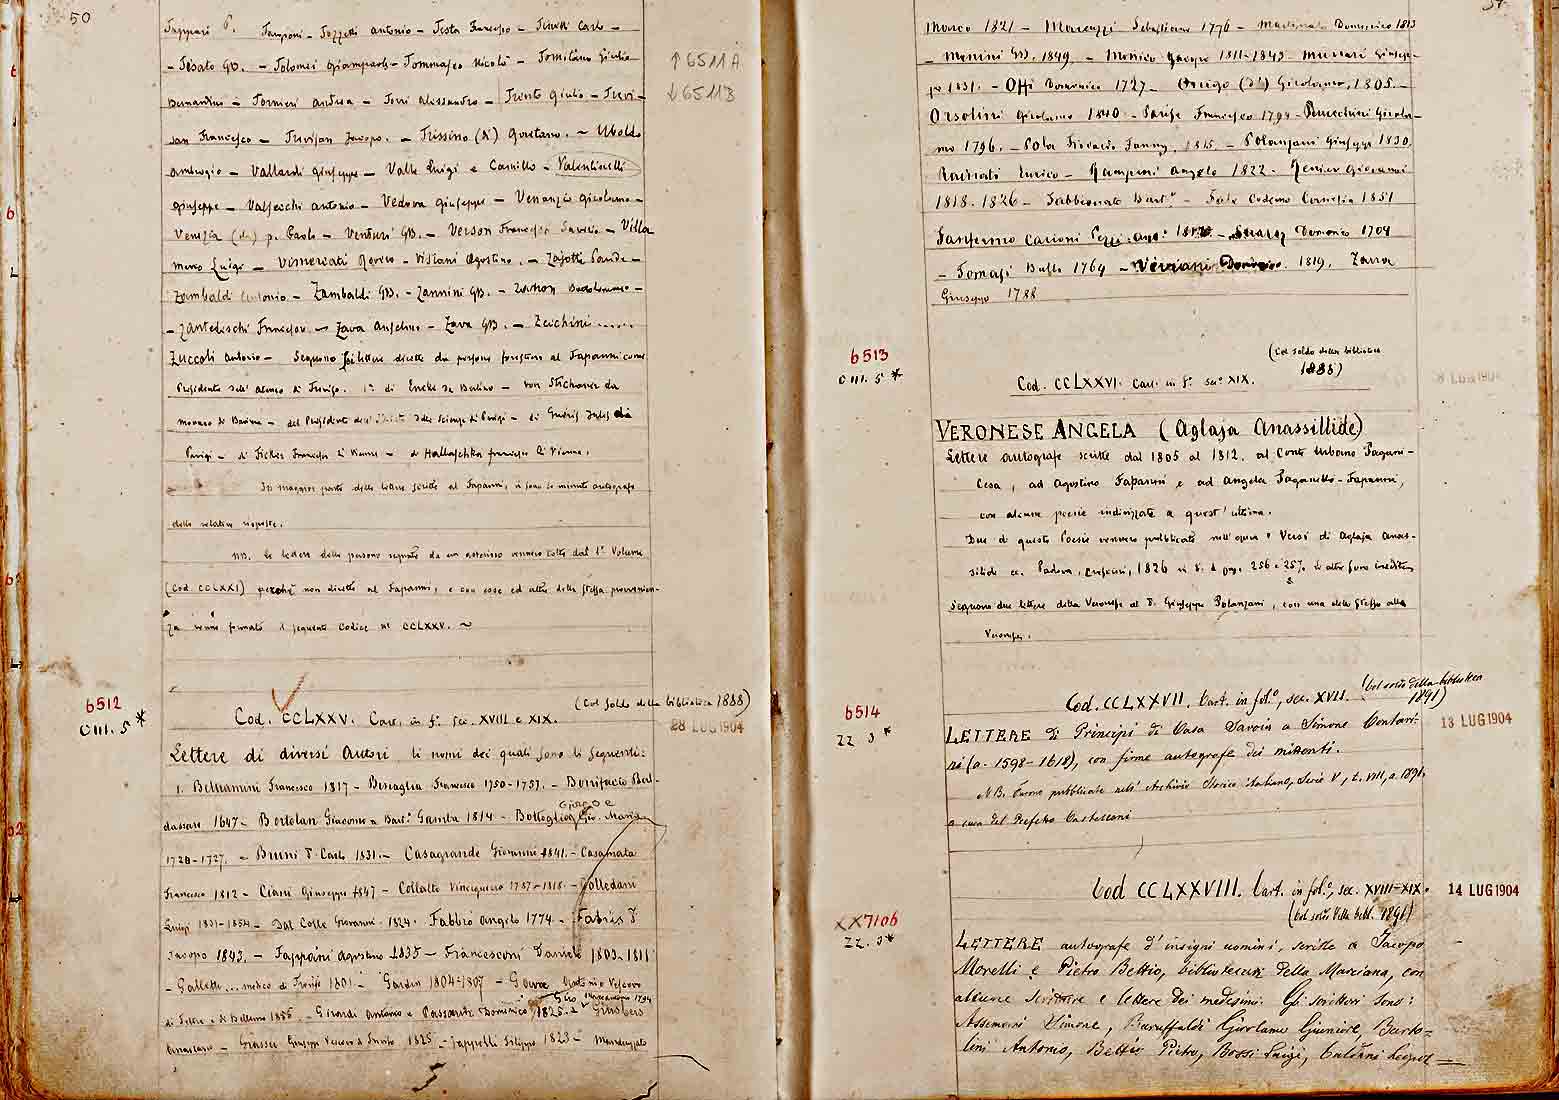 50
Tappari P. Tamponi - Tozzetti Antonio - Testa Francesco - Tinelli Carlo -
- Tosato GB. - Tolomei Giampaolo - Tommaseo Nicolò - Tomitano Giulio
Bernardino - Tornieri Andrea - Torri Alessandro - Trento Giulio - Trevi-
san Francesco - Trevisan Jacopo. - Trissino (di) Gaetano. ~ Uboldo
Ambrogio - Vallardi Giuseppe - Valle Luigi e Camillo - Valentinelli
Giuseppe - Valsecchi Antonio - Vedova Giuseppe - Venanzio Girolamo -
Venezia (da) p. Paolo - Venturi GB. - Verson Francesco Saverio - Villa
Luigi - Vimercati - Viviani Agostino. - Zajotti Paride -
Zambaldi Antonio - Zambaldi GB. - Zannini GB. - Zanon Bartolommeo -
- Zantedeschi Francesco - Zava Anselmo - Zava GB. - Zecchini .....
Zuccoli Antonio - Seguono lettere dirette da persone forestiere al Fapanni come
Presidente dell' Ateneo di Treviso. 1ª di Encke da Berlino - von Stichaner da
Monaco di Baviera - del Presidente dell' delle Scienze di Parigi - di Guérin Jules di
Parigi - di Ficker Francesco di Vienna - di Hallaschka Francesco di Vienna.
maggior parte delle lettere scritte al Fapanni, vi sono le minute autografe
delle relative risposte.
NB. Le lettere delle persone segnate da un asterisco vennero tolte dal 1º Volume
(Cod CCLXXI) perchè non dirette al Fapanni, e con esse ed altre della stessa provenien-
za venne formato il seguente codice nº CCLXXV. ~
↑6511A
↓6511B
6512
CIII. 5 *
Cod. CCLXXV. Cart. in fº. sec. XVIII e XIX.
(Col soldo della biblioteca 1888)
28 LUG 1904
Lettere di diversi Autori, li nomi dei quali sono li seguenti:
1. Beltramini Francesco 1817 - Bescaglia Francesco 1750-1757. - Bonifacio Bal-
dassare 1647 - Bortolan Giacomo a Bart.º Gamba 1814 - Bottoglia Gio. Maria
1720-1727. - Bruni D. Carlo 1831. - Casagrande Giovanni 1841. - Casamata
Francesco 1812 - Ciani Giuseppe 1847 - Collalto Vinciguerra 1757-1818. - Colledani
Luigi 1831-1854 - Dal Colle Giovanni - 1824. Fabbio Angelo 1774 - Fabris D
Jacopo 1843. - Fappani Agostino 1835 - Francesconi Daniele 1803-1811
- Galletti ... medico di Treviso 1801 - Gardin 1804-1807 - Antonio Vescovo
di Feltre e di Belluno 1855 - Girardi Antonio e Passarin Domenico 1825 -
- Grasser Giuseppe Vescovo di Treviso 1825 - Jappelli Filippo 1823 -
51
Marco 1821 - Marcuzzi Sebastiano 1776 - Domenico 1813
- Menini GB. 1849. - Monico Jacopo 1811-1843.
1831. - Offi Domenico 1727 - Onigo (d') Girolamo, 1805. -
Orsolini Girolamo 1840 - Parise Francesco 1794 - Girola-
mo 1796. - Pola Fioravio Fanny, 1815. - Polanzani Giuseppe 1830.
Enrico - Rampini Angelo 1822. Renier Giovanni
1818. 1826 - Sabbionato Bart.º - Sale Codemo Cornelia 1851
Sanfermo Carioni Pezzi - Domenico 1704
- Tomasi Buffo 1764 - Viviani Domenico. 1819. Zarra
Giuseppe 1788
6513
CIII. 5 *
(Col soldo della biblioteca
1888)
Cod. CCLXXVI. Cart. in fº. secº XIX.
VERONESE ANGELA (Aglaja Anassillide)
Lettere autografe scritte dal 1805 al 1812. al Conte Urbano Pagani-
Cesa, ad Agostino Fapanni e ad Angela Paganello-Fapanni,
con alcune poesie indirizzate a quest' ultima.
Due di queste Poesie vennero pubblicate nell' opera: Versi di Aglaja Anas-
silide ec. Padova, Crescini, 1826 in 8. a pag. 256 e 257. Le altre sono inedite.
Seguono due lettere della Veronese al D. Giuseppe Polanzani, con una dello stesso alla
Veronese.
6514
ZZ 3 *
Cod. CCLXXVII. Cart. in folº, sec. XVII.
(Col soldo della biblioteca
1891)
13 LUG 1904
LETTERE di Principi di Casa Savoia a Simone Contari-
ni (a. 1598-1618), con firme autografe dei mittenti.
NB. Furono pubblicate nell' Archivio Storico Italiano, Serie V, t. VIII, a. 1891,
a cura del Prefetto Castellani
XX7106
ZZ. 3 *
Cod CCLXXVIII. Cart. in fol.º, sec. XVIII-XIX.
(Col soldo della bibl. 1891)
14 LUG 1904
LETTERE autografe d' insigni uomini, scritte a Jacopo
Morelli e Pietro Bettio, bibliotecari della Marciana, con
alcune scritture e lettere dei medesimi. Gli scrittori sono:
Assemani Simone, Baruffaldi Girolamo Giuniore, Barto-
lini Antonio, Bettio Pietro, Bossi Luigi,